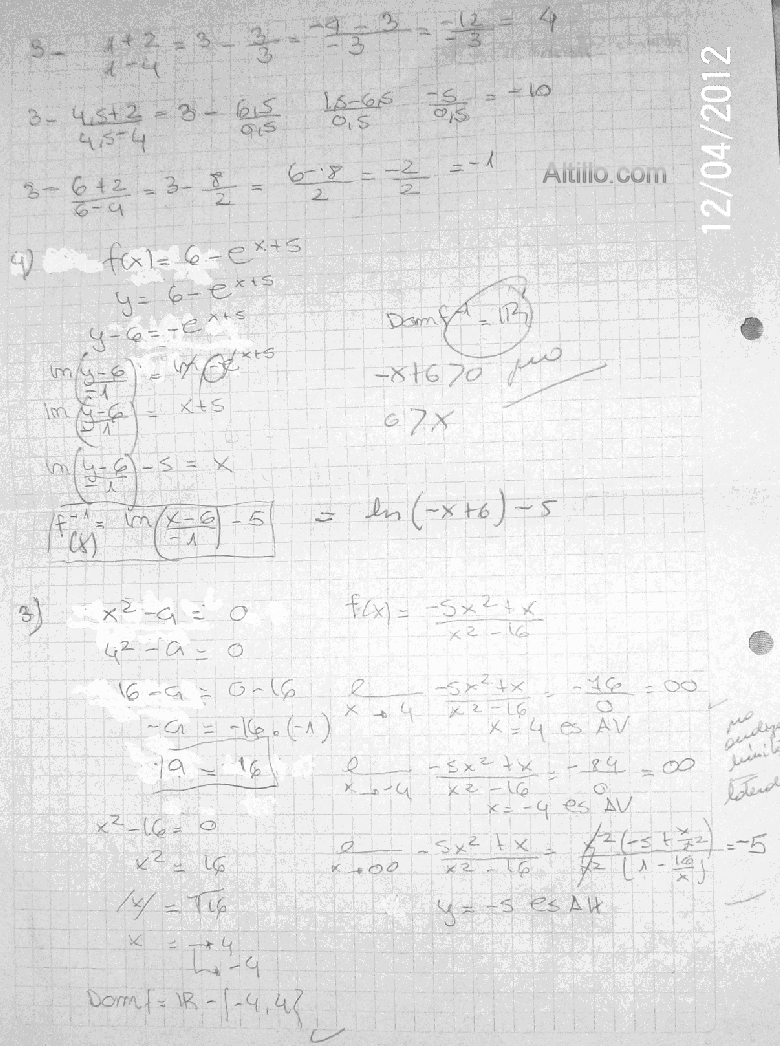 3 - (1+2)/(1-4) = 3 - 3/3 = (-9-3)/-3 = -12/-3 = 4
3 - (4,5+2)/(4,5-4) = 3 - 6,5/0,5 (1,5-6,5)/0,5 -5/0,5 = -10
3 - (6+2)/(6-4) = 3 - 8/2 = (6-8)/2 = -2/2 = -1
Altillo.com
12/04/2012
4) f(x) = 6 - e^(x+5)
y = 6 - e^(x+5)
y-6 = -e^(x+5)
ln((y-6)/-1) = ln e^(x+5)
ln((y-6)/-1) = x+5
ln((y-6)/-1) - 5 = x
f^-1(x) = ln((x-6)/-1) - 5 = ln(-x+6) - 5
Dom f^-1 = IR
-x+6>0
6>x
3) x² - a = 0
4² - a = 0
16 - a = 0-16
-a = -16.(-1)
a = 16
x²-16 = 0
x² = 16
/x/ = √16
x = → 4
↳ -4
Dom f = IR - {-4, 4}
f(x) = (-5x²+x)/(x²-16)
l x→4 (-5x²+x)/(x²-16) = -76/0 = ∞
x = 4 es AV
l x→-4 (-5x²+x)/(x²-16) = -84/0 = ∞
x = -4 es AV
l x→∞ (-5x²+x)/(x²-16) = x²(-5+x/x²)/x²(1-16/x) = -5
y = -5 es AH